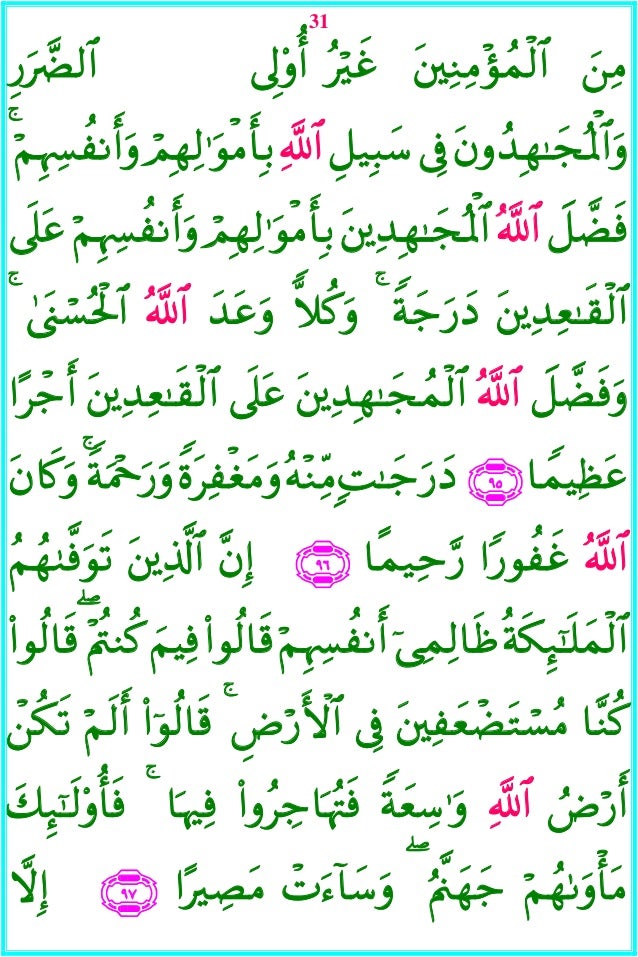 31
مِنَ ٱلْمُؤْمِنِينَ غَيْرُ أُو۟لِى ٱلضَّرَرِ
وَٱلْمُجَـٰهِدُونَ فِى سَبِيلِ ٱللَّهِ بِأَمْوَٰلِهِمْ وَأَنفُسِهِمْ ۚ
فَضَّلَ ٱللَّهُ ٱلْمُجَـٰهِدِينَ بِأَمْوَٰلِهِمْ وَأَنفُسِهِمْ عَلَى
ٱلْقَـٰعِدِينَ دَرَجَةً ۚ وَكُلًّا وَعَدَ ٱللَّهُ ٱلْحُسْنَىٰ ۚ
وَفَضَّلَ ٱللَّهُ ٱلْمُجَـٰهِدِينَ عَلَى ٱلْقَـٰعِدِينَ أَجْرًا
عَظِيمًا ٩٥ دَرَجَـٰتٍ مِّنْهُ وَمَغْفِرَةً وَرَحْمَةً ۚ وَكَانَ
ٱللَّهُ غَفُورًا رَّحِيمًا ٩٦ إِنَّ ٱلَّذِينَ تَوَفَّىٰهُمُ
ٱلْمَلَـٰٓئِكَةُ ظَالِمِىٓ أَنفُسِهِمْ قَالُوا۟ فِيمَ كُنتُمْ ۖ قَالُوا۟
كُنَّا مُسْتَضْعَفِينَ فِى ٱلْأَرْضِ ۚ قَالُوٓا۟ أَلَمْ تَكُنْ
أَرْضُ ٱللَّهِ وَٰسِعَةً فَتُهَاجِرُوا۟ فِيهَا ۚ فَأُو۟لَـٰٓئِكَ
مَأْوَىٰهُمْ جَهَنَّمُ ۖ وَسَآءَتْ مَصِيرًا ٩٧ إِلَّا